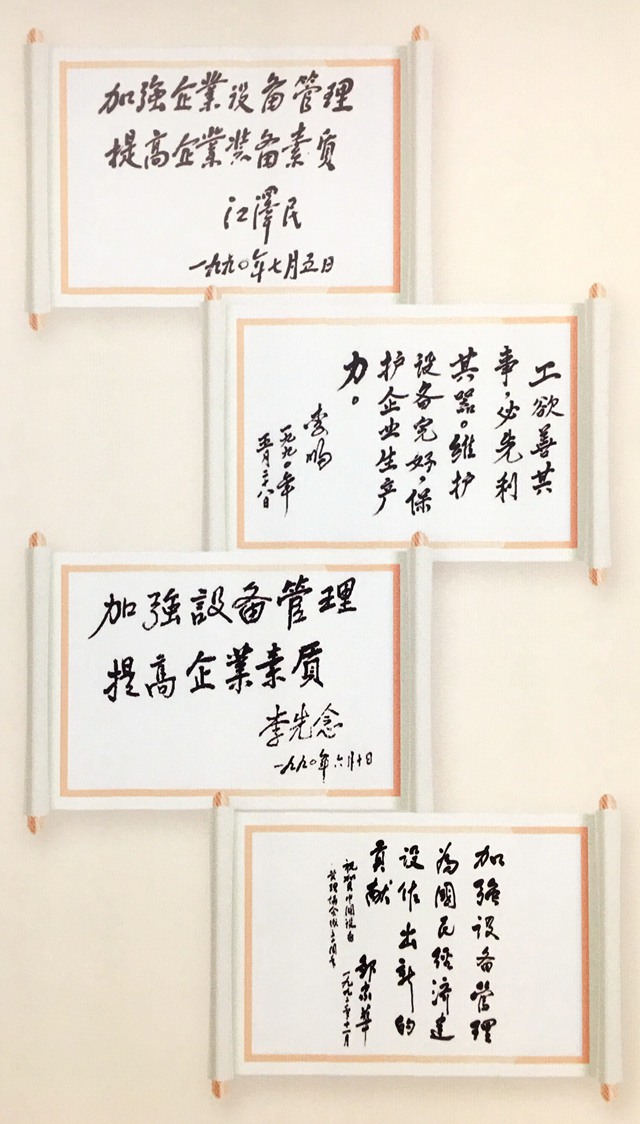 加強企業设备管理
提高企業装备素质
江澤民
一九九〇年七月五日
工欲善其
事，必先利
其器。维护
设备完好，保
护企业生产
力。
李鹏
一九九〇年
五月二十八日
加強設备管理
提高企業素質
李先念
一九九〇年六月十日
加強设备管理
為國民经济建
设作出新的
貢献
祝贺中国设备
管理协会成立
邹家华